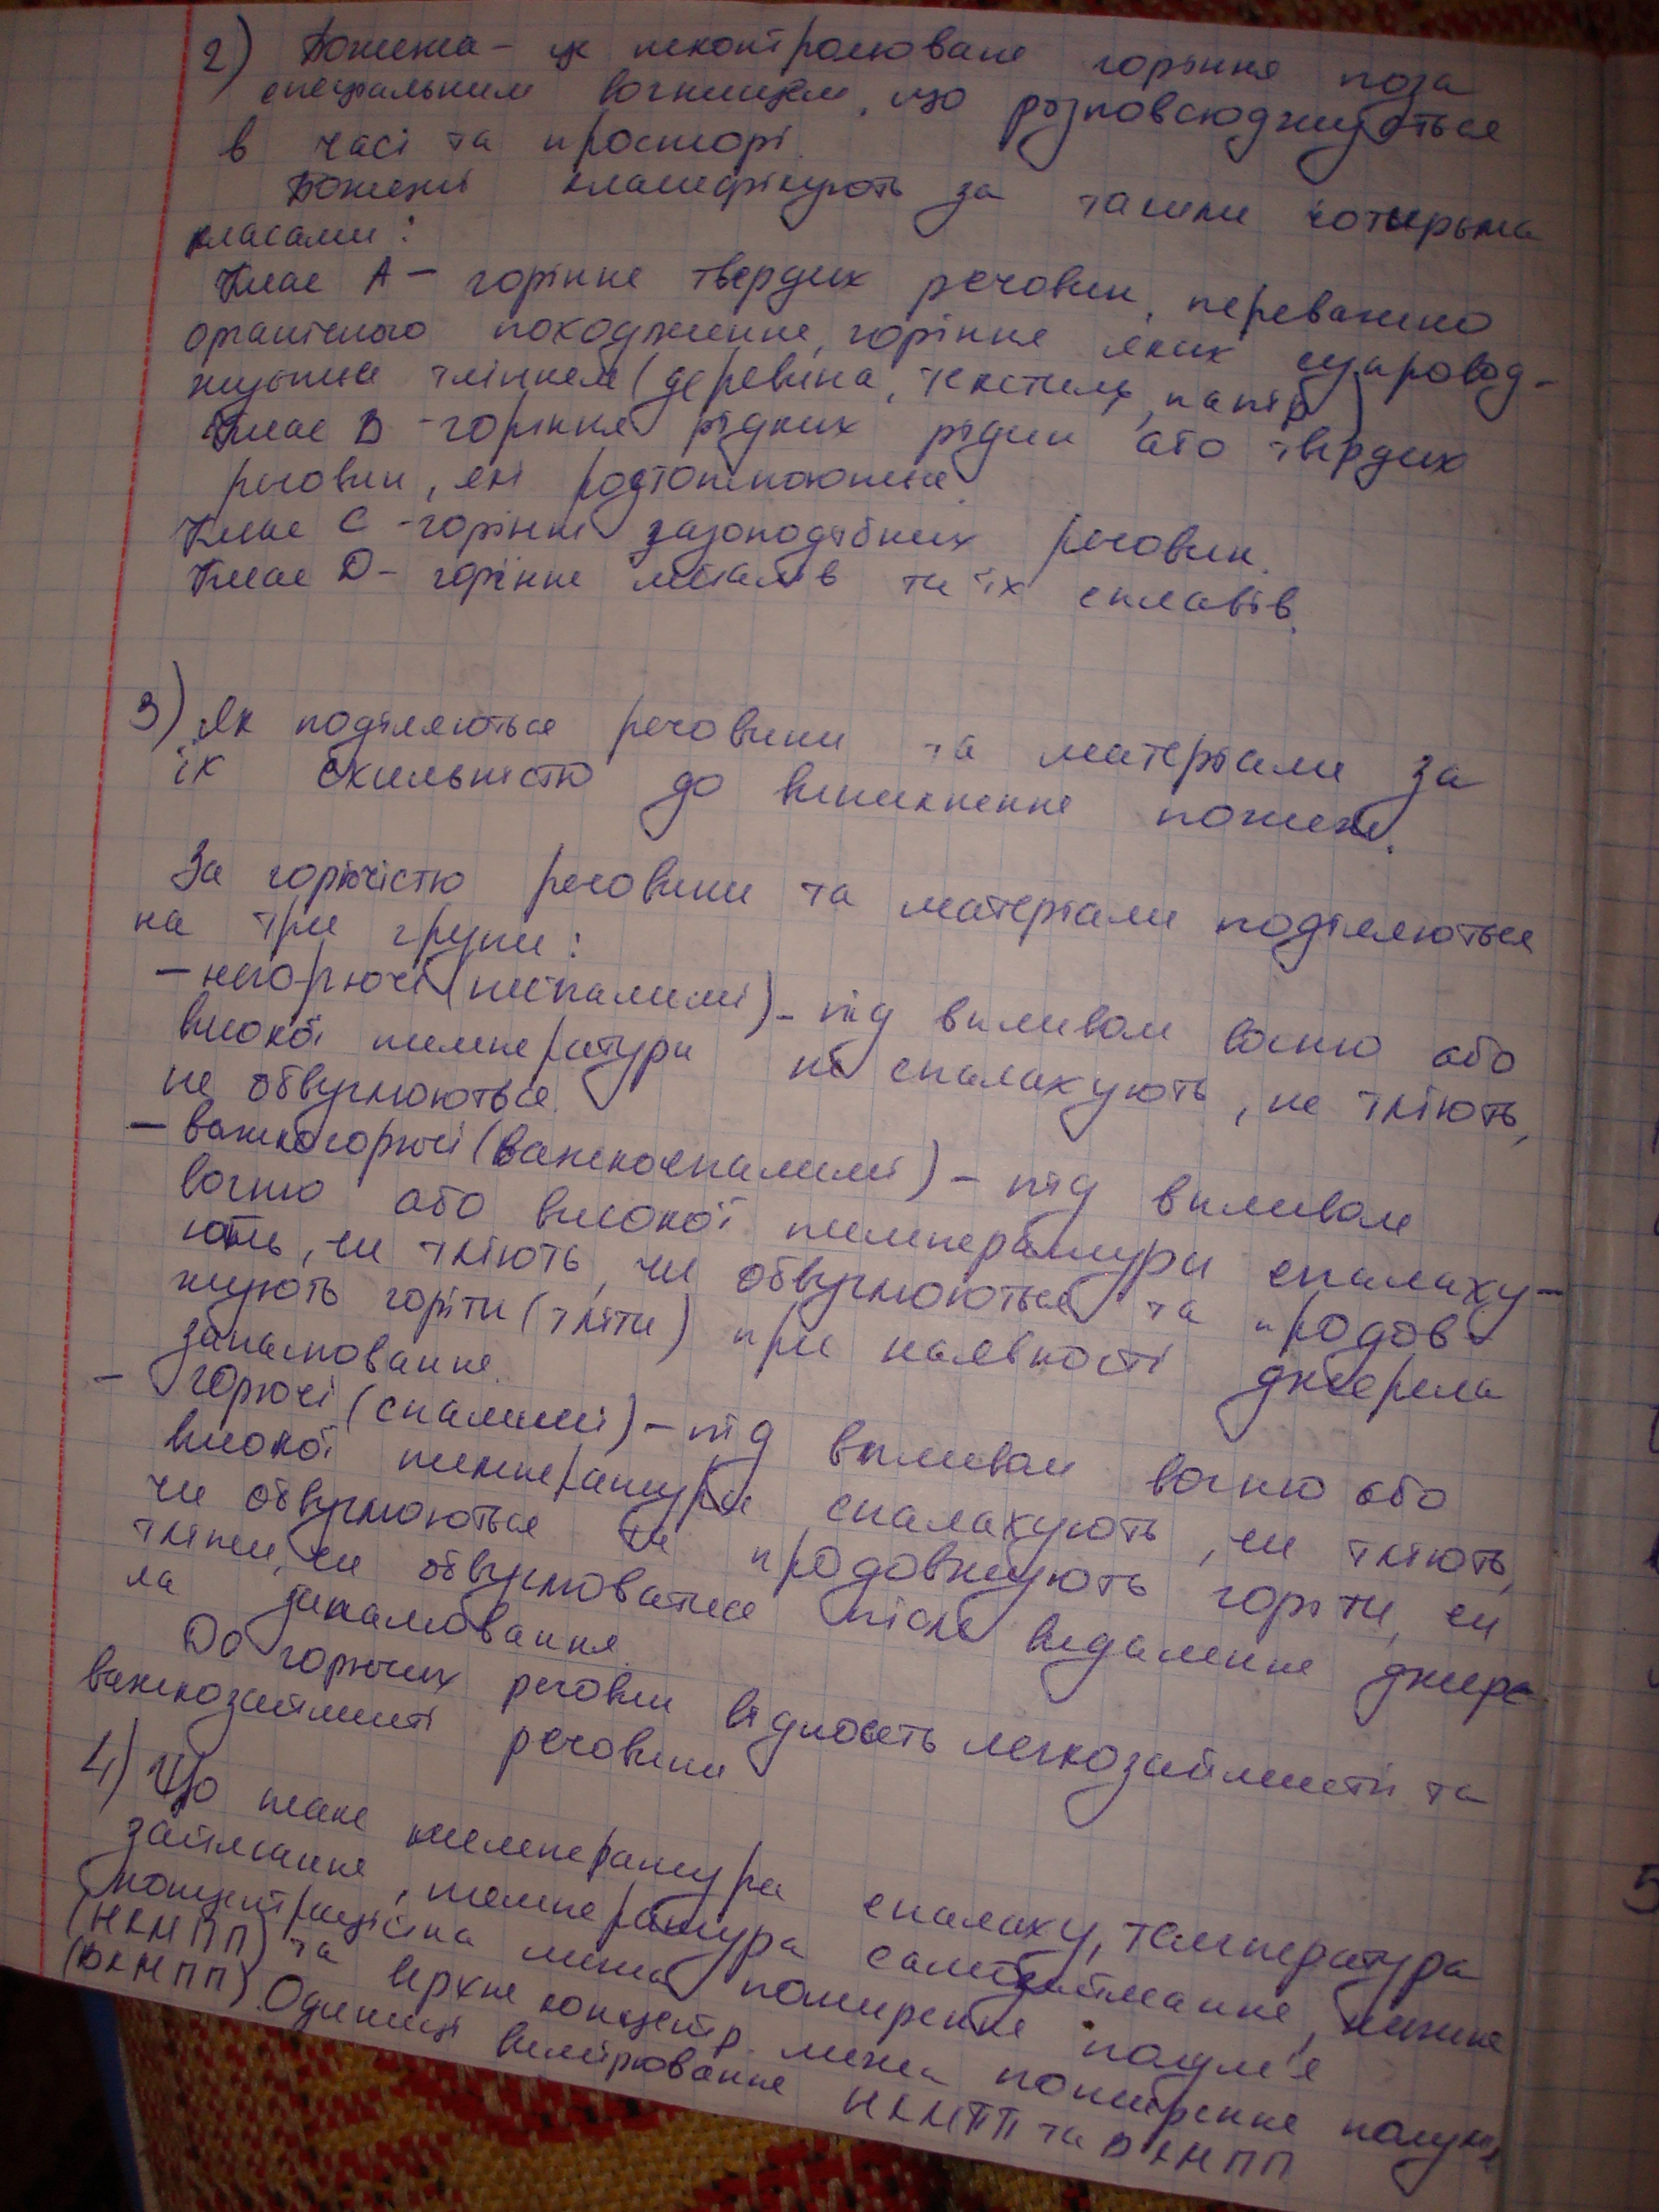 2) Пожежа - це неконтрольоване горіння поза
спеціальним вогнищем, що розповсюджується
в часі та просторі.
Пожежі класифікують за такими чотирьма
класами:
Клас А - горіння твердих речовин, переважно
органічного походження, горіння яких супровод-
жується тлінням (деревина, текстиль, папір)
Клас В - горіння рідких рідин або твердих
речовин, які розтоплюються.
Клас С - горіння газоподібних речовин.
Клас D - горіння металів та їх сплавів.
3) Як поділяються речовини та матеріали за
їх схильністю до виникнення пожежі.
За горючістю речовини та матеріали поділяються
на три групи:
- негорючі (неспалимі) - під впливом вогню або
високої температури не спалахують, не тліють,
не обвуглюються.
- важкогорючі (важкоспалимі) - під впливом
вогню або високої температури спалаху-
ють, чи тліють, чи обвуглюються та продов-
жують горіти (тліти) при наявності джерела
запалювання.
- горючі (спалимі) - під впливом вогню або
високої температури спалахують, чи тліють,
чи обвуглюються та продовжують горіти, чи
тліти, чи обвуглюватися після видалення джере-
ла запалювання.
До горючих речовин відносять легкозаймисті та
важкозаймисті речовини
4) Що таке температура спалаху, температура
займання, температура самозаймання, нижня
концентраційна межа поширення полум'я
(НКМПП) та верхня концентр. межа поширення полум'я
(ВКМПП). Одиниці вимірювання НКМПП та ВКМПП
5